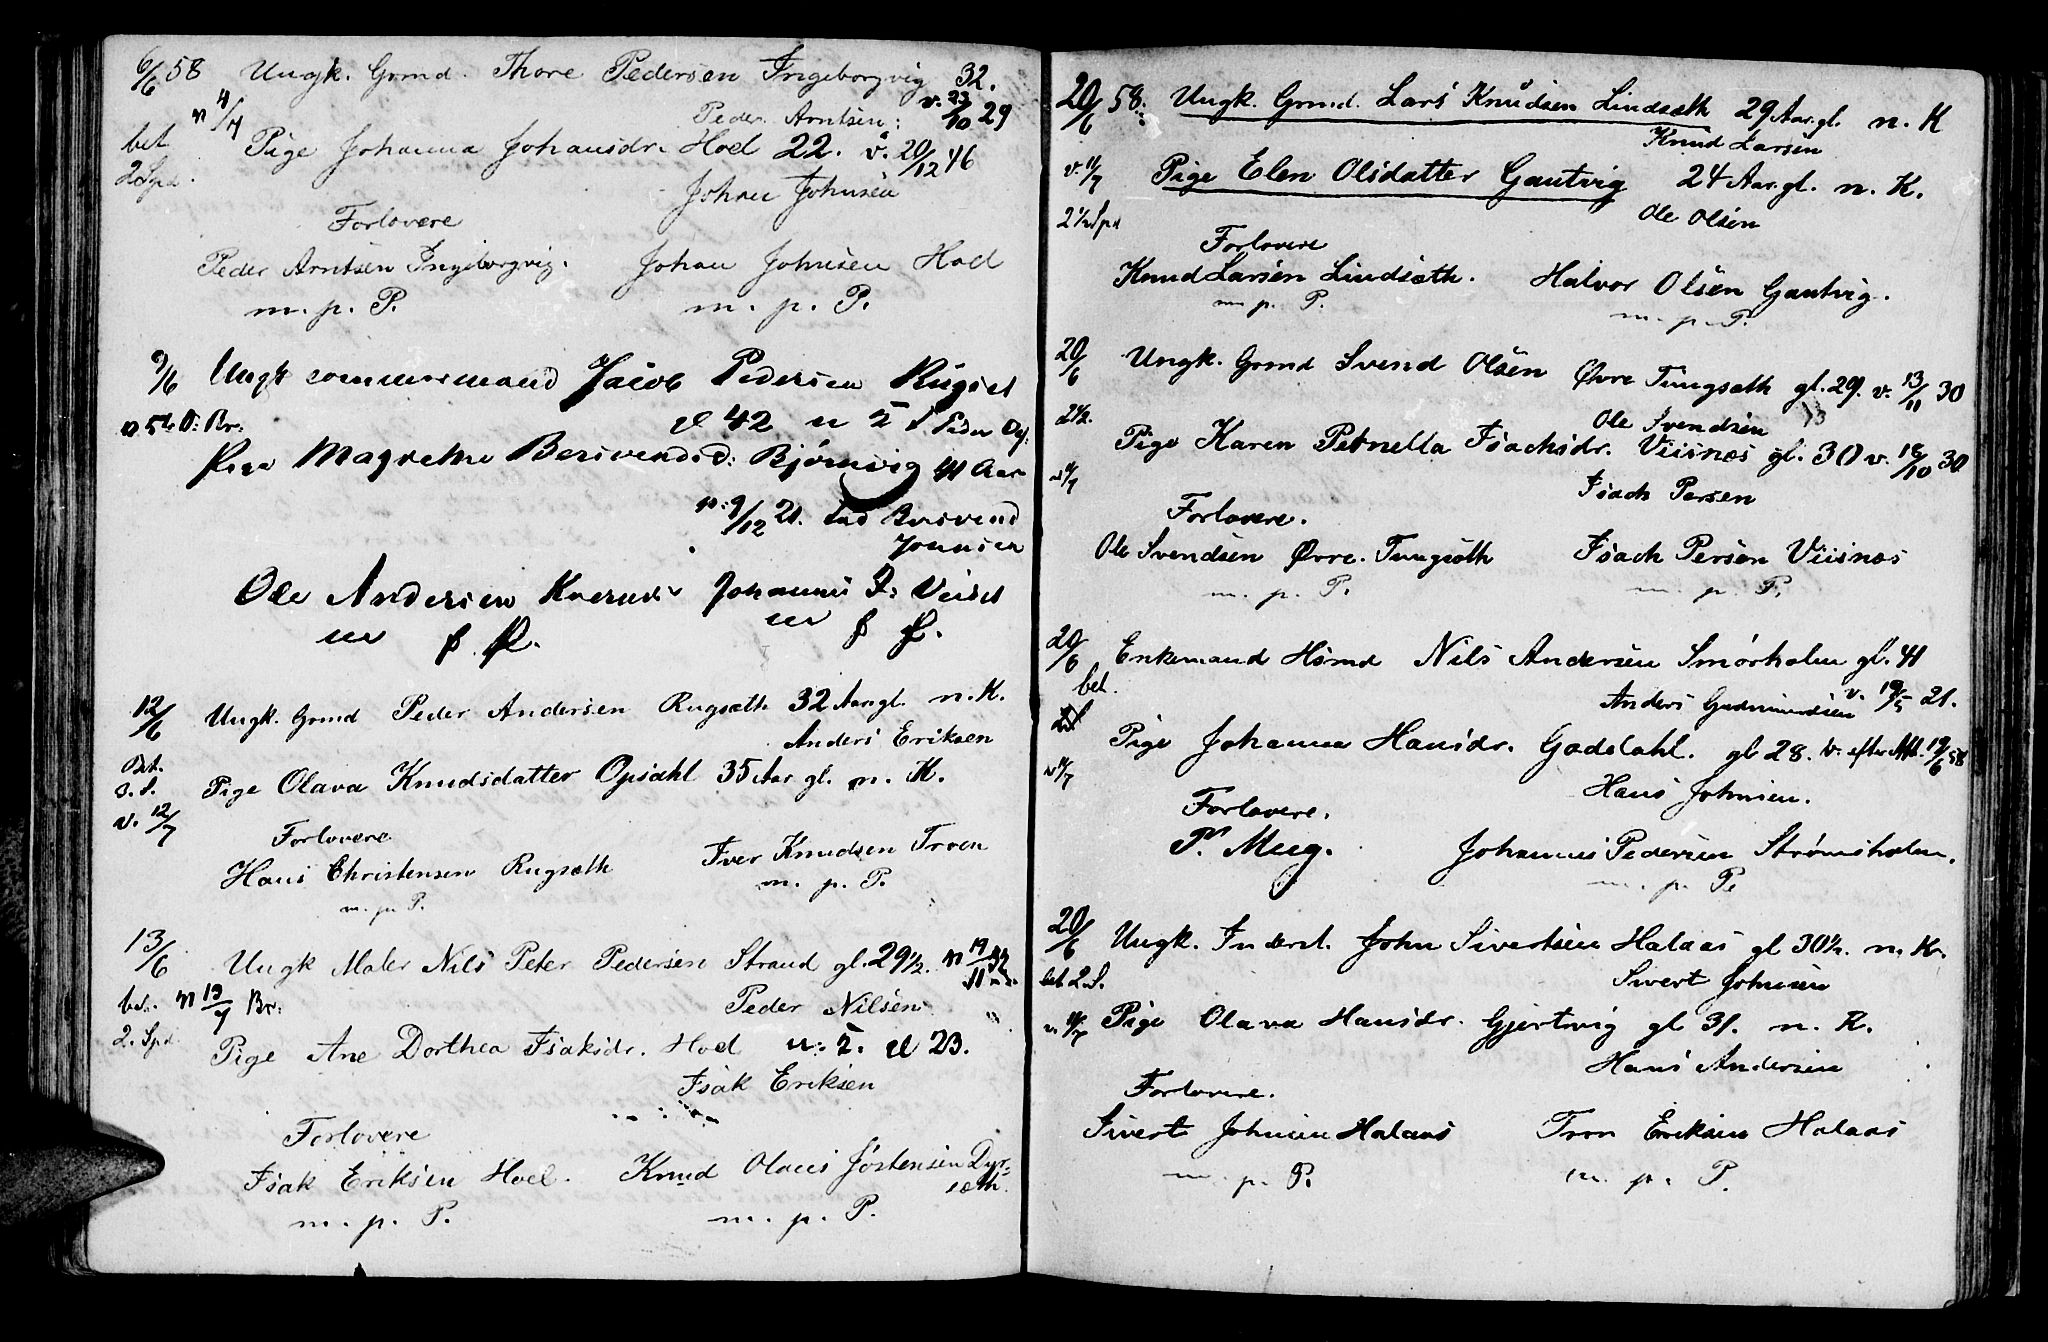 6/6 58 Ungk. Grmd. Thore Pedersen Ingeborgvig 32.
n 4/7 Peder Arntsen: v. 23/10 29
bet Pige Johanna Johansdr. Hoel 22. v. 20/12 46
2 Spd. Johan Johnsen
Forlovere
Peder Arntsen Ingeborgvig. Johan Johnsen Hoel
m. p. P. m. p. P.
9/6 Ungk Jacob Pedersen Rugset
Br: 42
Bersvendsd: Bjørnvig 41 Aar
9/12 21. Bersvend
Johnsen
Ole Andersen Johannes Veiset
m p P. m p P.
12/6 Ungk. Grmd Peder Andersen Rugsæth 32 Aar gl. n. K.
Anders Eriksen
Bet.
3. S. Pige Olava Knudsdatter Opsahl 35 Aar gl. n. K.
v. 12/7
Forlovere
Hans Christensen Rugsæth Iver Knudsen Troen
m. p. P. m. p. P.
13/6 Ungk Maler Nils Peter Pedersen Strand gl. 29 1/2. 19/11
bet. n 13/7 Br: Peder Nilsen
2. Spd. Pige Ane Dorthea Isaksdr. Hoel 23.
Isak Eriksen
Forlovere
Isak Eriksen Hoel. Knud Olaus Jostensen Dyr=
sæth.
m. p. P. m. p. P.
20/6 58. Ungk. Grmd. Lars Knudsen Lindsæth 29 Aar gl. n. K
Knud Larsen
v. 11/7 Pige Elen Olsdatter Gautvig 24 Aar gl. n. K.
2 1/2 Spd Ole Olsen
Forlovere
Knud Larsen Lindsæth. Halvor Olsen Gautvig.
m. p. P. m. p. P.
20/6 Ungk. Grmd Svend Olsen Øvre Tungsæth gl. 29. v. 13/11 30
2 1/2. Ole Svendsen 13
Pige Karen Petnella Isachsdr. Viisnæs gl. 30 v. 18/10 30
v 11/7 Isach Persen
Forlovere.
Ole Svendsen Øvre Tungsæth Isach Persen Viisnæs
m. p. P. m. p. P.
20/6 Enkemand Hsmd Nils Andersen Smørholm gl. 41
bet. Anders Gudmundsen v. 19/5 21.
Pige Johanna Hansdr. Gaddahl. gl 28. v. efter Att. 19/6 58
v 11/7 Hans Johnsen.
Forlovere.
P. Mug. Johannes Pedersen Strømsholm.
m. p. P.
20/6 Ungk. Inderst. John Sivertsen Halaas gl 30 1/2. n. K.
bet 2. S. Sivert Johnsen
v. 11/7 Pige Olava Hansdr. Gjertvig gl 31. n. K.
Hans Andersen
Forlovere.
Sivert Johnsen Halaas Tron Eriksen Halaas
m. p. P. m. p. P.